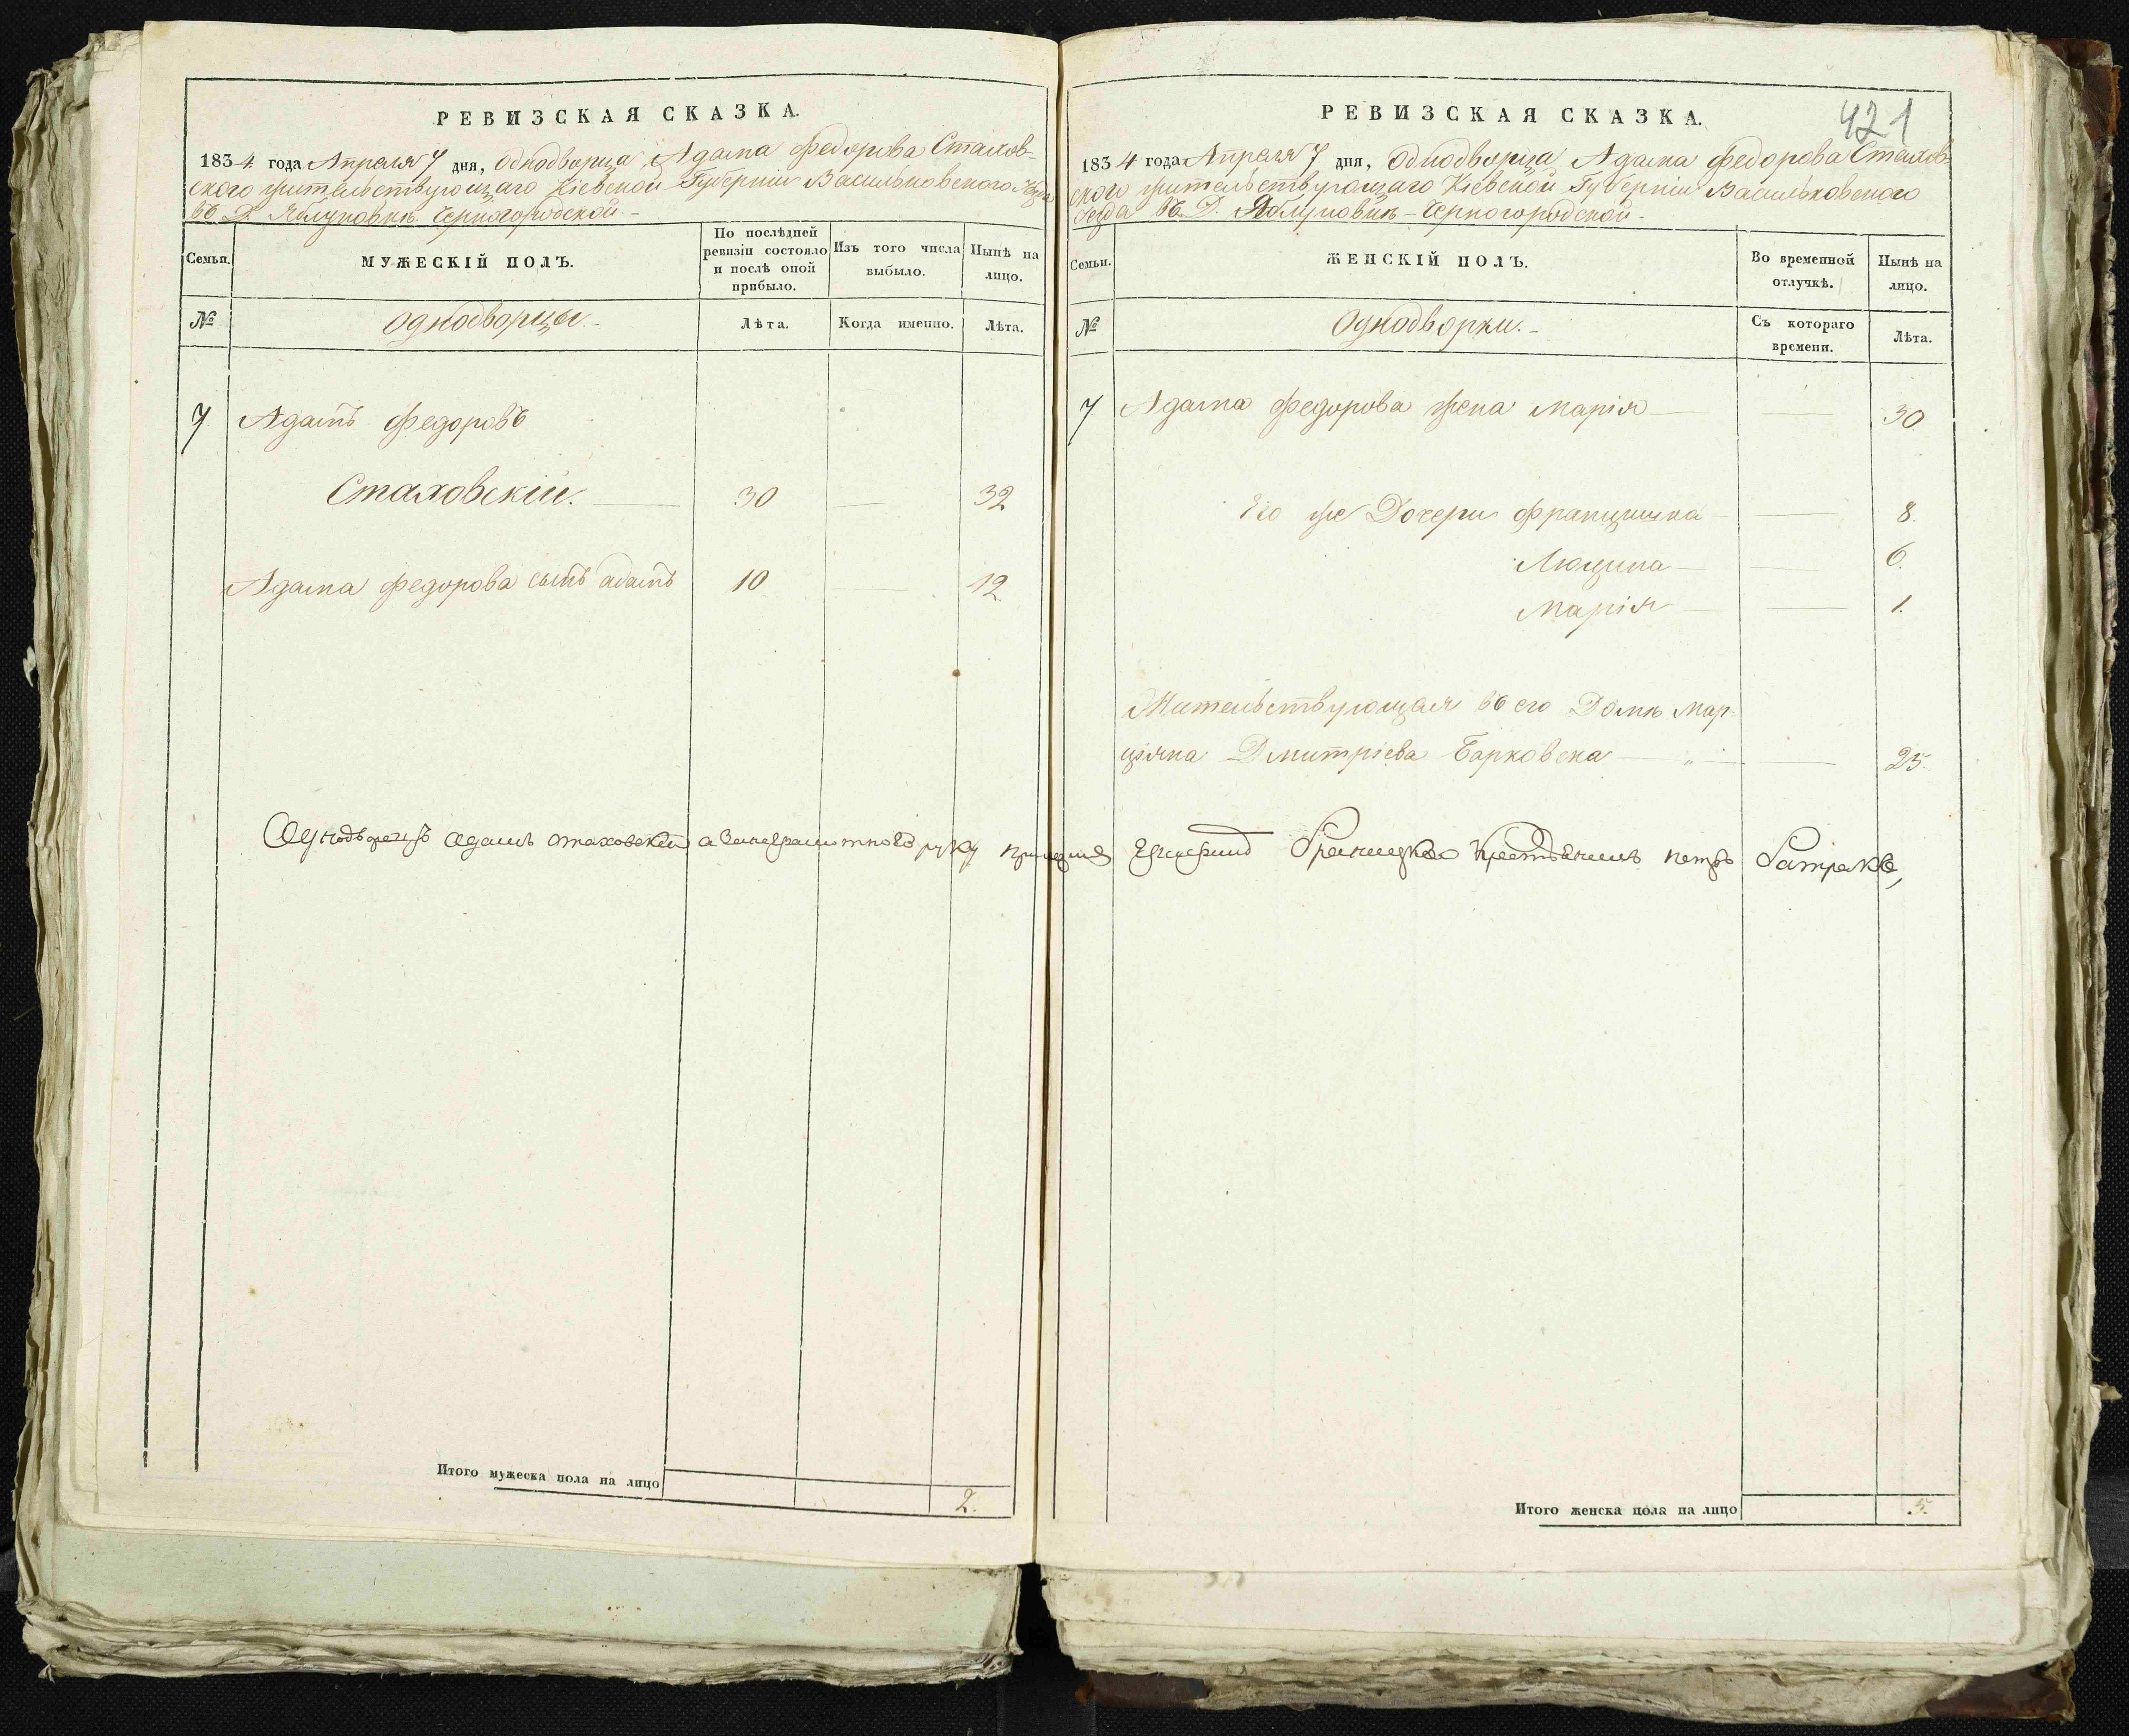 РЕВИЗСКАЯ СКАЗКА.
1834 года Апреля 7 дня, Однодворца Адама Федорова Стахов-
ского жительствующаго Кіевской Губерніи Васильковского Уезда
въ Д. Яблуновке Черногородской.-
Семьи.
МУЖЕСКІЙ ПОЛЪ.
По послѣдней ревизіи состояло и послѣ оной прибыло.
Изъ того числа выбыло.
Нынѣ на лицо.
№
Однодворцы.-
Лѣта.
Когда именно.
Лѣта.
7 Адамъ Федоровъ
Стаховскій. 30 — 32
Адама Федорова сынъ Адамъ 10 — 12.
Однодворецъ Адамъ Стаховскій а вместо неграмотного руку
Итого мужеска пола на лицо 2.
421
РЕВИЗСКАЯ СКАЗКА.
1834 года Апреля 7 дня, Однодворца Адама Федорова Стахов-
ского жительствующаго Кіевской Губерніи Васильковского
Уезда въ Д. Яблуновке - Черногородской.
Семьи.
ЖЕНСКІЙ ПОЛЪ.
Во временной отлучкѣ.
Нынѣ на лицо.
№
Однодворки.-
Съ котораго времени.
Лѣта.
7 Адама Федорова жена Марія — 30
Его же Дочери Францишка — 8.
Люцина — 6.
Марія — 1.
Жительствующая въ его Доме Мар-
ціяна Дмитріева Барковска — " — 25.
Браницкого крестьянинъ Петръ
Итого женска пола на лицо 5.